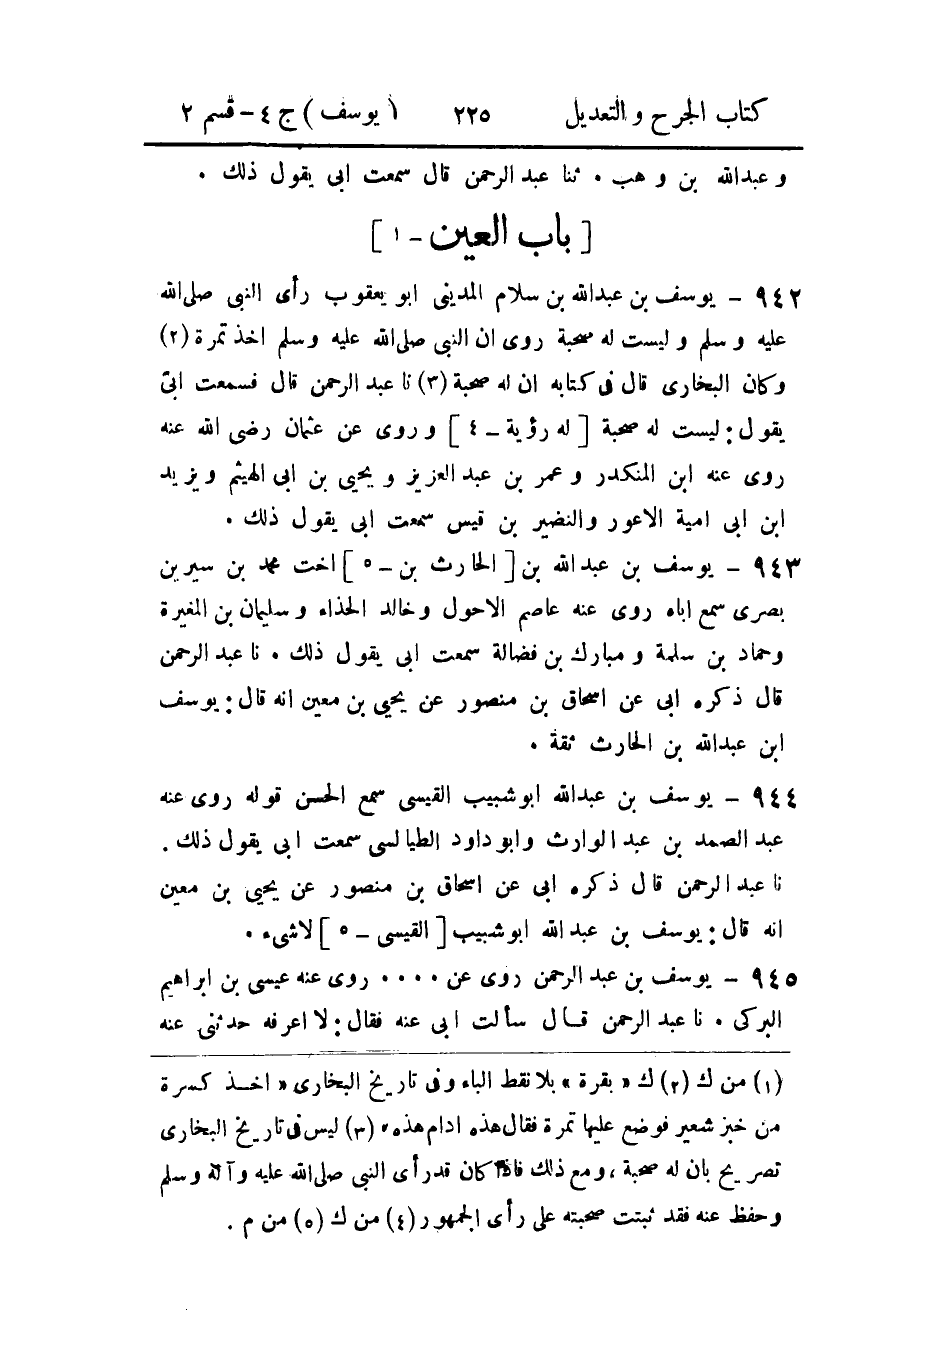 كتاب الجرح و التعديل ٢٢٥ ( يوسف ) ج ٤ - قسم ٢
و عبدالله بن وهب . ثنا عبد الرحمن قال سمعت ابى يقول ذلك .
[ باب العين - ١ ]
٩٤٢ - يوسف بن عبدالله بن سلام المدينى ابو يعقوب رأى النبى صلى الله
عليه و سلم و ليست له صحبة روى ان النبى صلى الله عليه وسلم اخذ تمرة (٢)
وكان البخارى قال فى كتابه ان له صحبة (٣) نا عبد الرحمن قال فسمعت ابى
يقول : ليست له صحبة [ له رؤية - ٤ ] و روى عن عثمان رضى الله عنه
روى عنه ابن المنكدر و عمر بن عبد العزيز و يحيى بن ابى الهيثم و يزيد
ابن ابى امية الاعور والنضير بن قيس سمعت ابى يقول ذلك .
٩٤٣ - يوسف بن عبد الله بن [ الحارث بن - ٥ ] اخت محمد بن سيرين
بصرى سمع اباه روى عنه عاصم الاحول و خالد الحذاء و سليمان بن المغيرة
وحماد بن سلمة و مبارك بن فضالة سمعت ابى يقول ذلك . نا عبد الرحمن
قال ذكره ابى عن اسحاق بن منصور عن يحيى بن معين انه قال : يوسف
ابن عبدالله بن الحارث ثقة .
٩٤٤ - يوسف بن عبدالله ابو شبيب القيسى سمع الحسن قوله روى عنه
عبد الصمد بن عبد الوارث و ابو داود الطيالسى سمعت ابى يقول ذلك .
نا عبد الرحمن قال ذكره ابى عن اسحاق بن منصور عن يحيى بن معين
انه قال : يوسف بن عبد الله ابو شبيب [ القيسى - ٥ ] لاشىء .
٩٤٥ - يوسف بن عبد الرحمن روى عن .... روى عنه عيسى بن ابراهيم
البركى . نا عبد الرحمن قال سألت ابى عنه فقال : لا اعرفه حدثنى عنه
(١) من ك (٢) ك « بقرة » بلا نقط الباء وفى تاريخ البخارى « اخذ كسرة
من خبز شعير فوضع عليها تمرة فقال هذه ادام هذه » (٣) ليس فى تاريخ البخارى
تصريح بان له صحبة ، ومع ذلك فاذا كان قد رأى النبى صلى الله عليه وآله وسلم
وحفظ عنه فقد ثبتت صحبته على رأى الجمهور (٤) من ك (٥) من م .